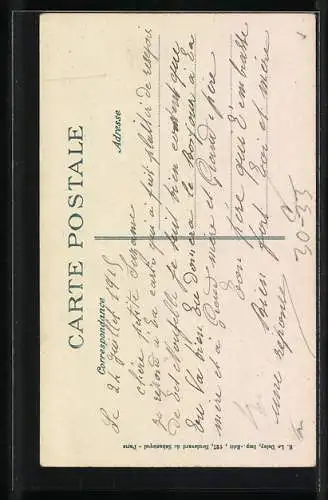 CARTE POSTALE
Correspondance
Adresse
Le 24 Juillet 1915
chère petite Suzanne
je répond à ta carte qui a fait plaisir de reçevoir
de tes Nouvelle je suis bien content que
tu la bien tu donnera le bonjour à ta
mère et à Grand mère et Grand père
Ton père qui t'embrasse
bien fort Toi et mère
une réponse
E. Le Deley, Imp.-Édit., 127, Boulevard de Sébastopol - Paris